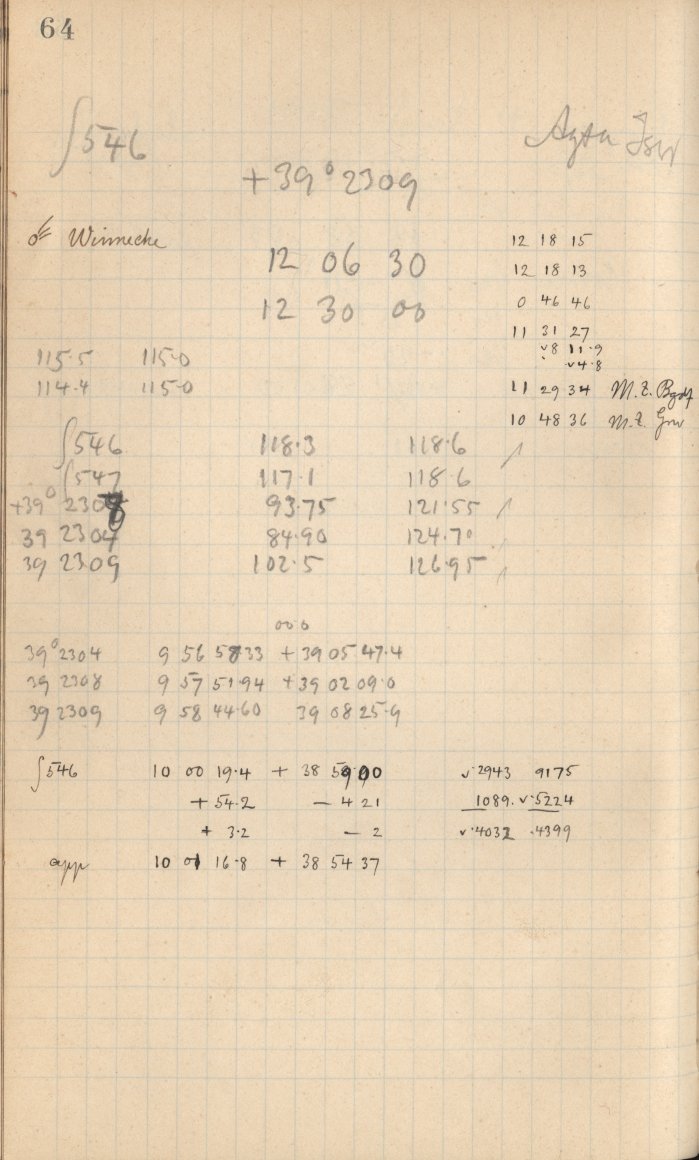 64
∫546
+39° 2309
Winnecke
12 18 15
12 06 30
12 18 13
12 30 00
0 46 46
11 31 27
v8 11·9
v4·8
115·5 115·0
114·4 115·0
11 29 34 M.Z. Bgdf
10 48 36 M.Z. Grw
∫546 118·3 118·6
∫547 117·1 118·6
+39° 2308 93·75 121·55
39 2304 84·90 124·70
39 2309 102·5 126·95
39° 2304 9 56 58 33 +39 05 47·4
39 2308 9 57 51·94 +39 02 09·0
39 2309 9 58 44·60 39 08 25·9
∫546 10 00 19·4 + 38 59 00 v·2943 9175
+ 54·2 − 4 21 1089· v·5224
+ 3·2 − 2 v·4032 ·4399
app 10 01 16·8 + 38 54 37